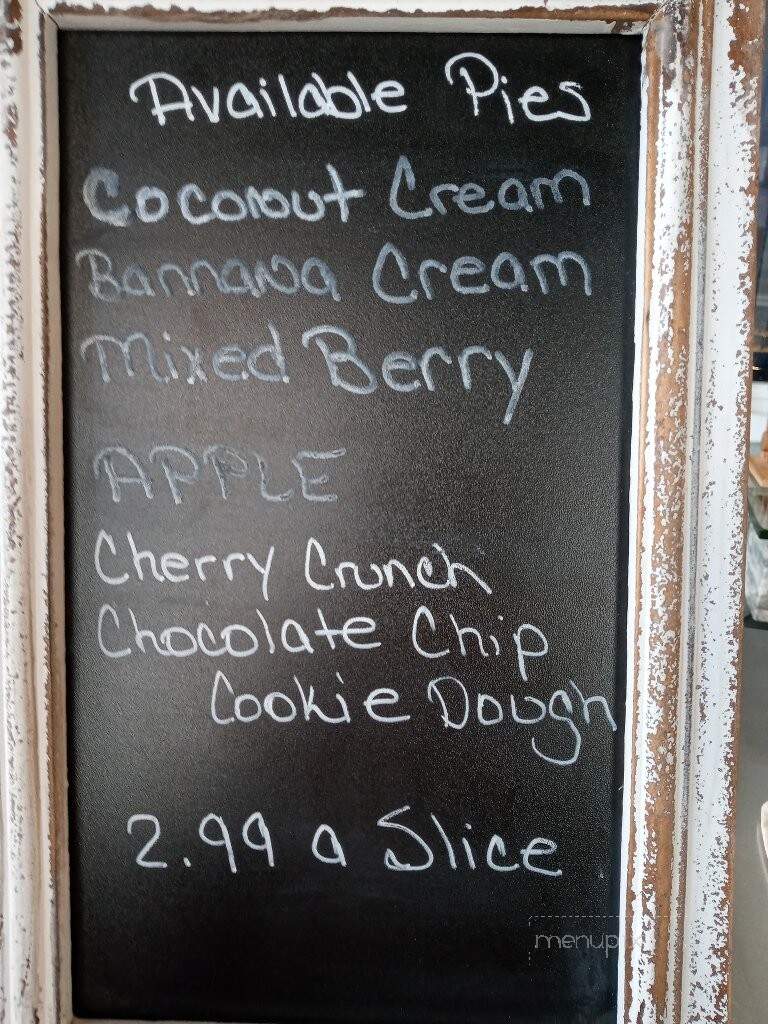 Available Pies
Coconut Cream
Bannana Cream
Mixed Berry
APPLE
Cherry Crunch
Chocolate Chip
Cookie Dough
2.99 a Slice